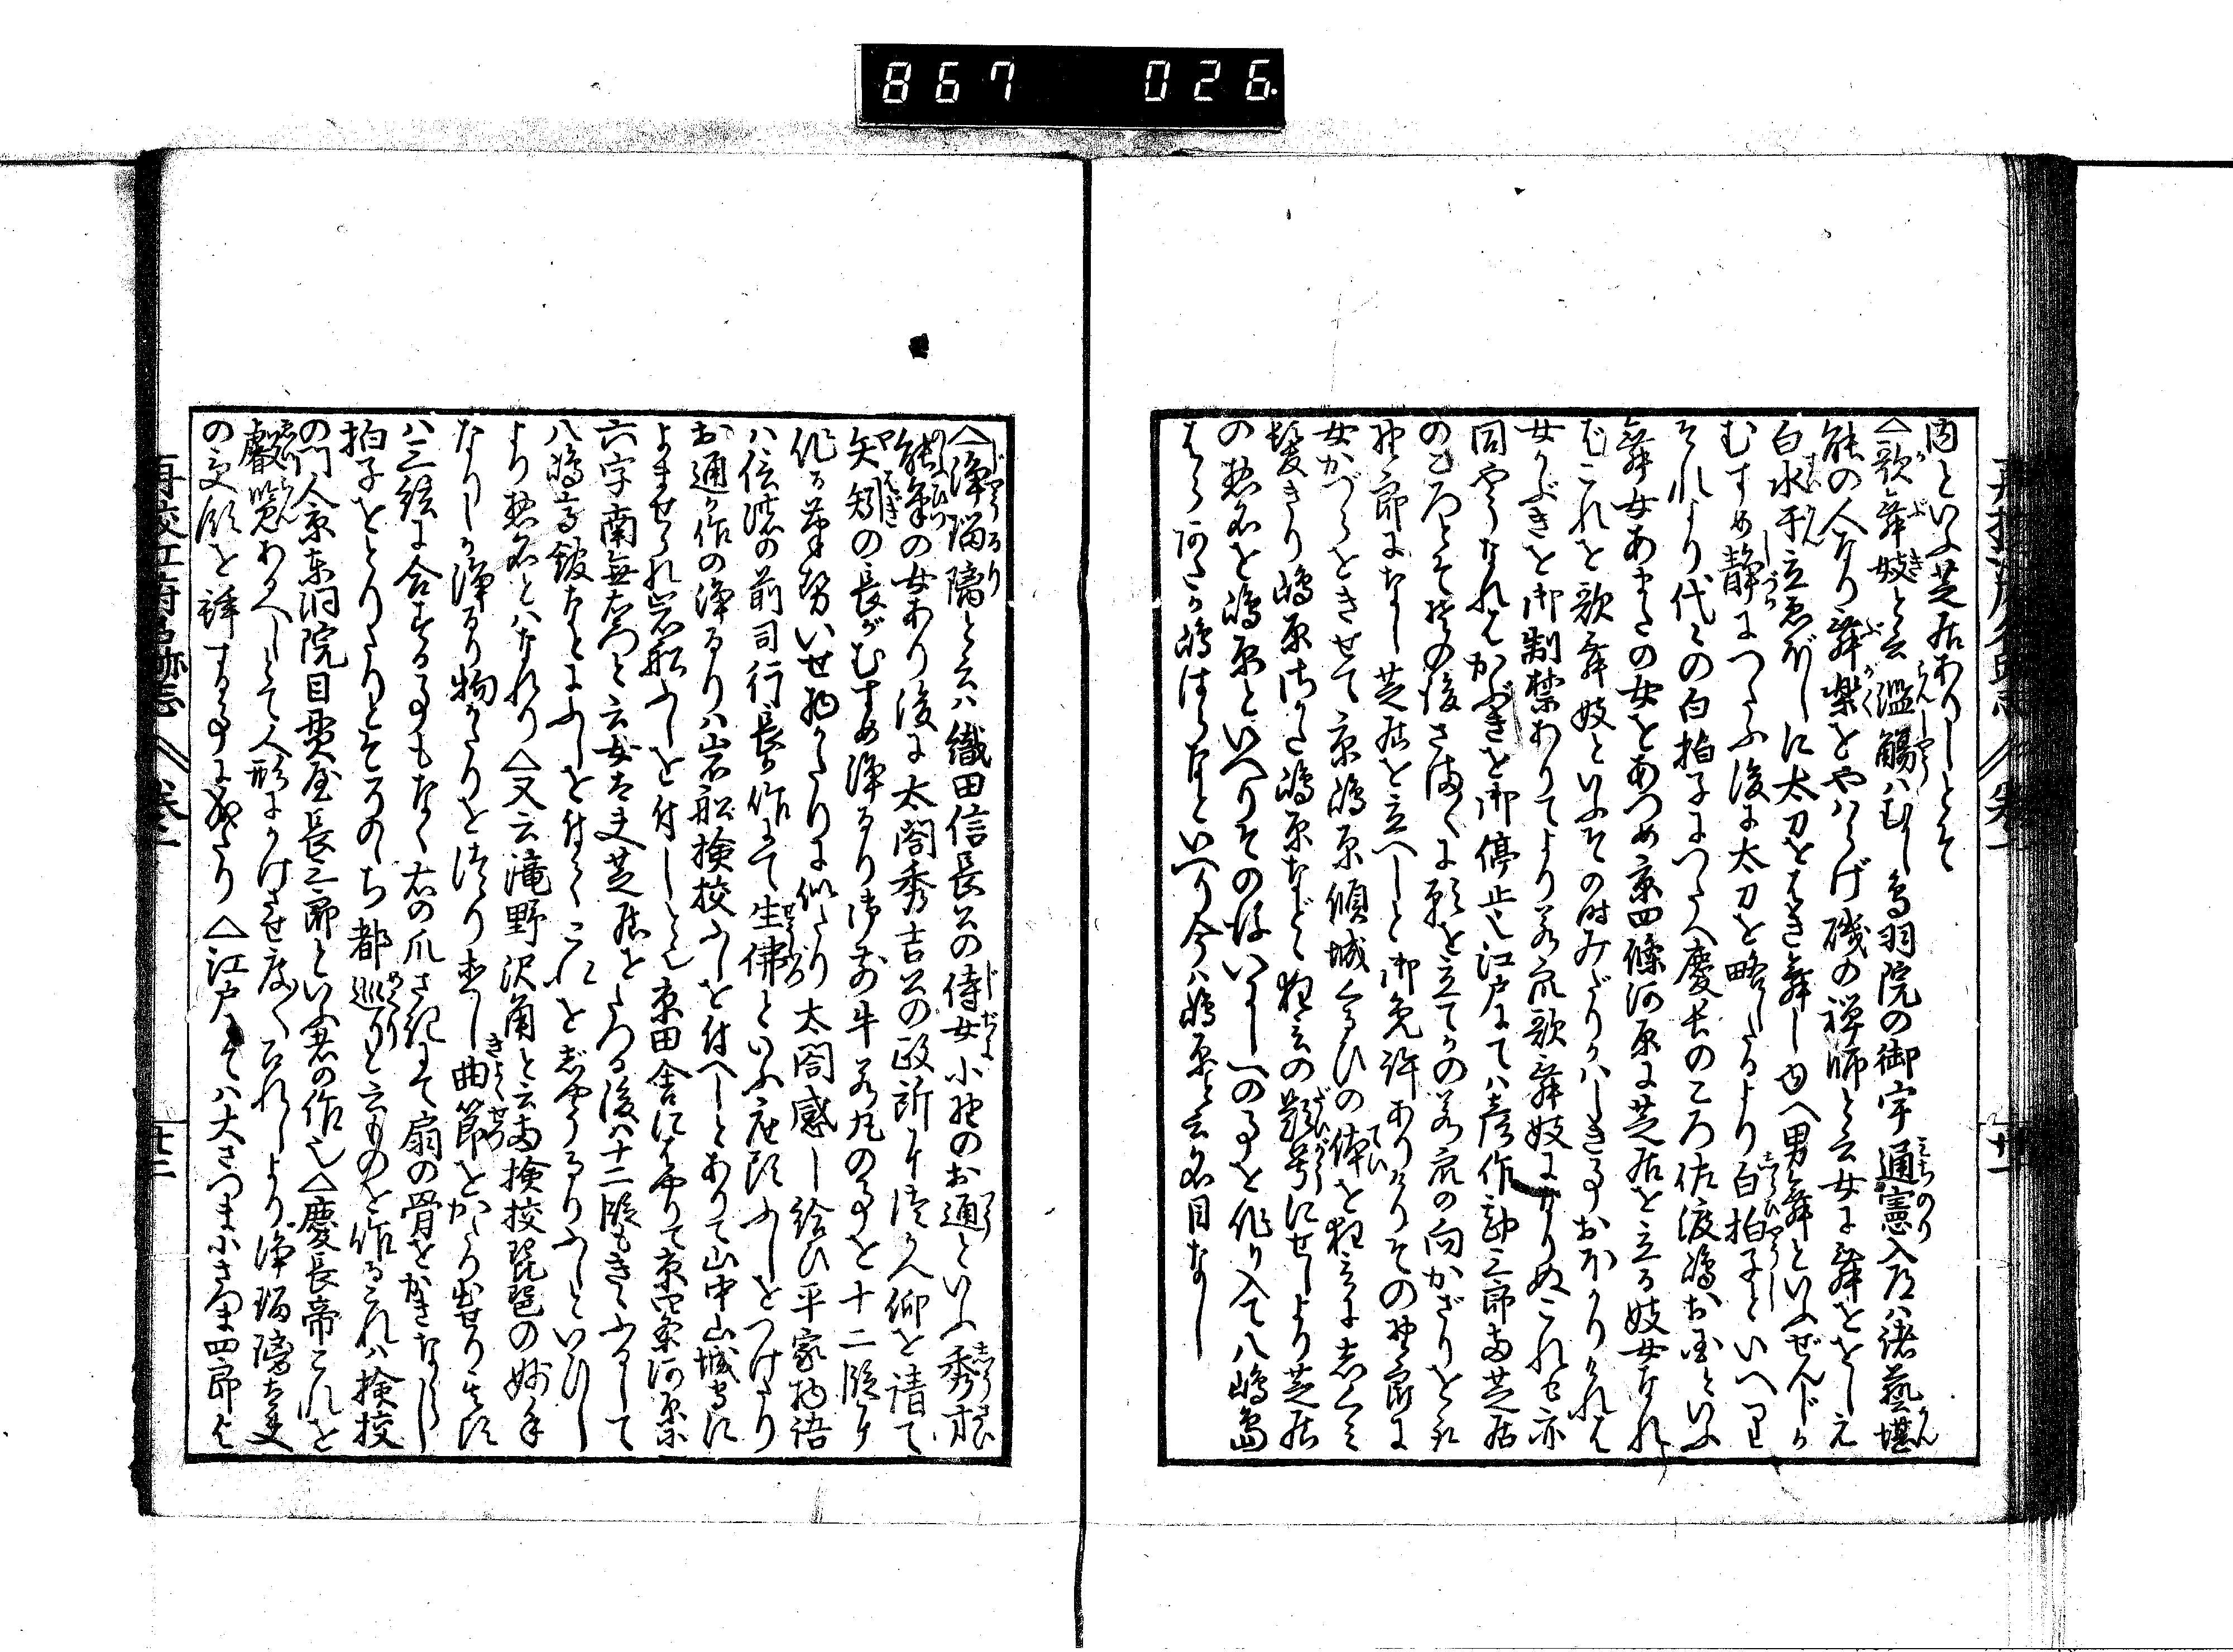 867 026.
内といふ芝居ありしとそ
△歌舞妓と云濫觴ハむかし鳥羽院の御宇通憲入道ハ諸藝堪
能の人なり舞楽をやハらげ礒の禅師と云女に舞をおしえ
白水干立ゑぼしに太刀をはき舞し由へ男舞といふぜんじが
むすめ静につたふ後に太刀を略したるより白拍子といへり
それより代々の白拍子につたへ慶長のころ佐渡嶋お国といふ
舞女あまたの女をあつめ京四條河原に芝居を立る妓女なれ
ばこれを歌舞妓といふその時みだりがハしき事おほかりけれは
女かぶきを御制禁ありてより若衆歌舞妓にかハりぬこれも亦
同やうなれはかぶきを御停止也江戸にてハ彦作勘三郎両芝居
のころとそ其の後さま〳〵に願を立てかの若衆の向かざりをとれ
野郎になし芝居を立へしと御免許ありけりその野郎に
女かづらをきせて京嶋原傾城くるひの体を狂言にしくミ
髪きり嶋原さかた嶋原なと狂言の題号にせしより芝居
の惣名を嶋原といへりその後いにしへの事を作り入て八嶋嶋
はら
嶋はらなといへり今ハ嶋原と云名目なし
△浄瑠璃と云ハ織田信長公の侍女小野のお通といふ秀才
能筆の女あり後に太閤秀吉公の政所に仕へ仰を請て
矢矧の長がむすめ浄るり御前牛若丸の事を十二段に
作る筆勢いせ物かたりに似たり太閤感し給ひ平家物語
ハ信濃の前司行長か作にて生佛といふ座頭ふしをつけたり
お通か作の浄るりハ岩船検校ふしを付へしとありて山中山城守に
よませられ岩船ふしを付しとそ京田舎にはやりて京四条河原
六字南無右衛門と云女太夫芝居をたつる後ハ十二段もきゝふるして
八嶋高舘なとにふしを付てこれを浄るりふしといひし
より惣名とハなれり△又云滝野沢角と云両検校琵琶の妙手
なりしか浄るり物かたりを語り出し曲節をかたり出せり其頃
ハ三絃に合する事もなく右の爪さきにて扇の骨をかきならし
拍子をとりたりとそそののち都巡りと云ものを作るこれハ検校
の門人京東洞院目貫屋長三郎といふ者の作也△慶長帝これを
叡覧あるへしとて人形にかけさせ度〳〵召れしより浄瑠璃太夫
の受領を拝する事に成たり△江戸にてハ大さつま小さつま四郎与
再校江府名跡志 巻一
十一
十二